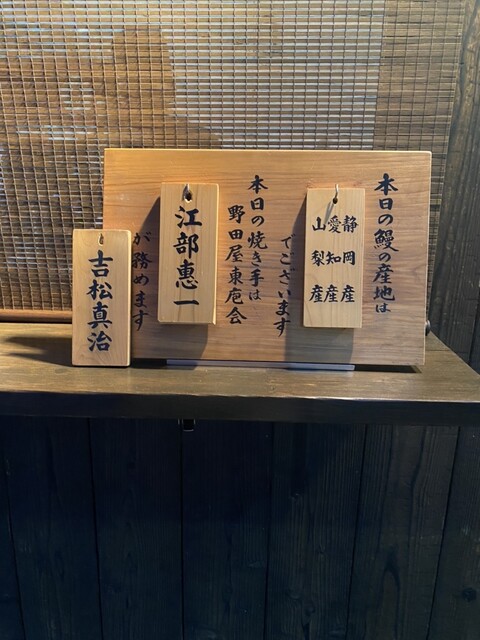 本日の鰻の産地は
静岡産
愛知産
山梨産
でございます
本日の焼き手は
野田屋東庖会
江部惠一
が務めます
吉松真治